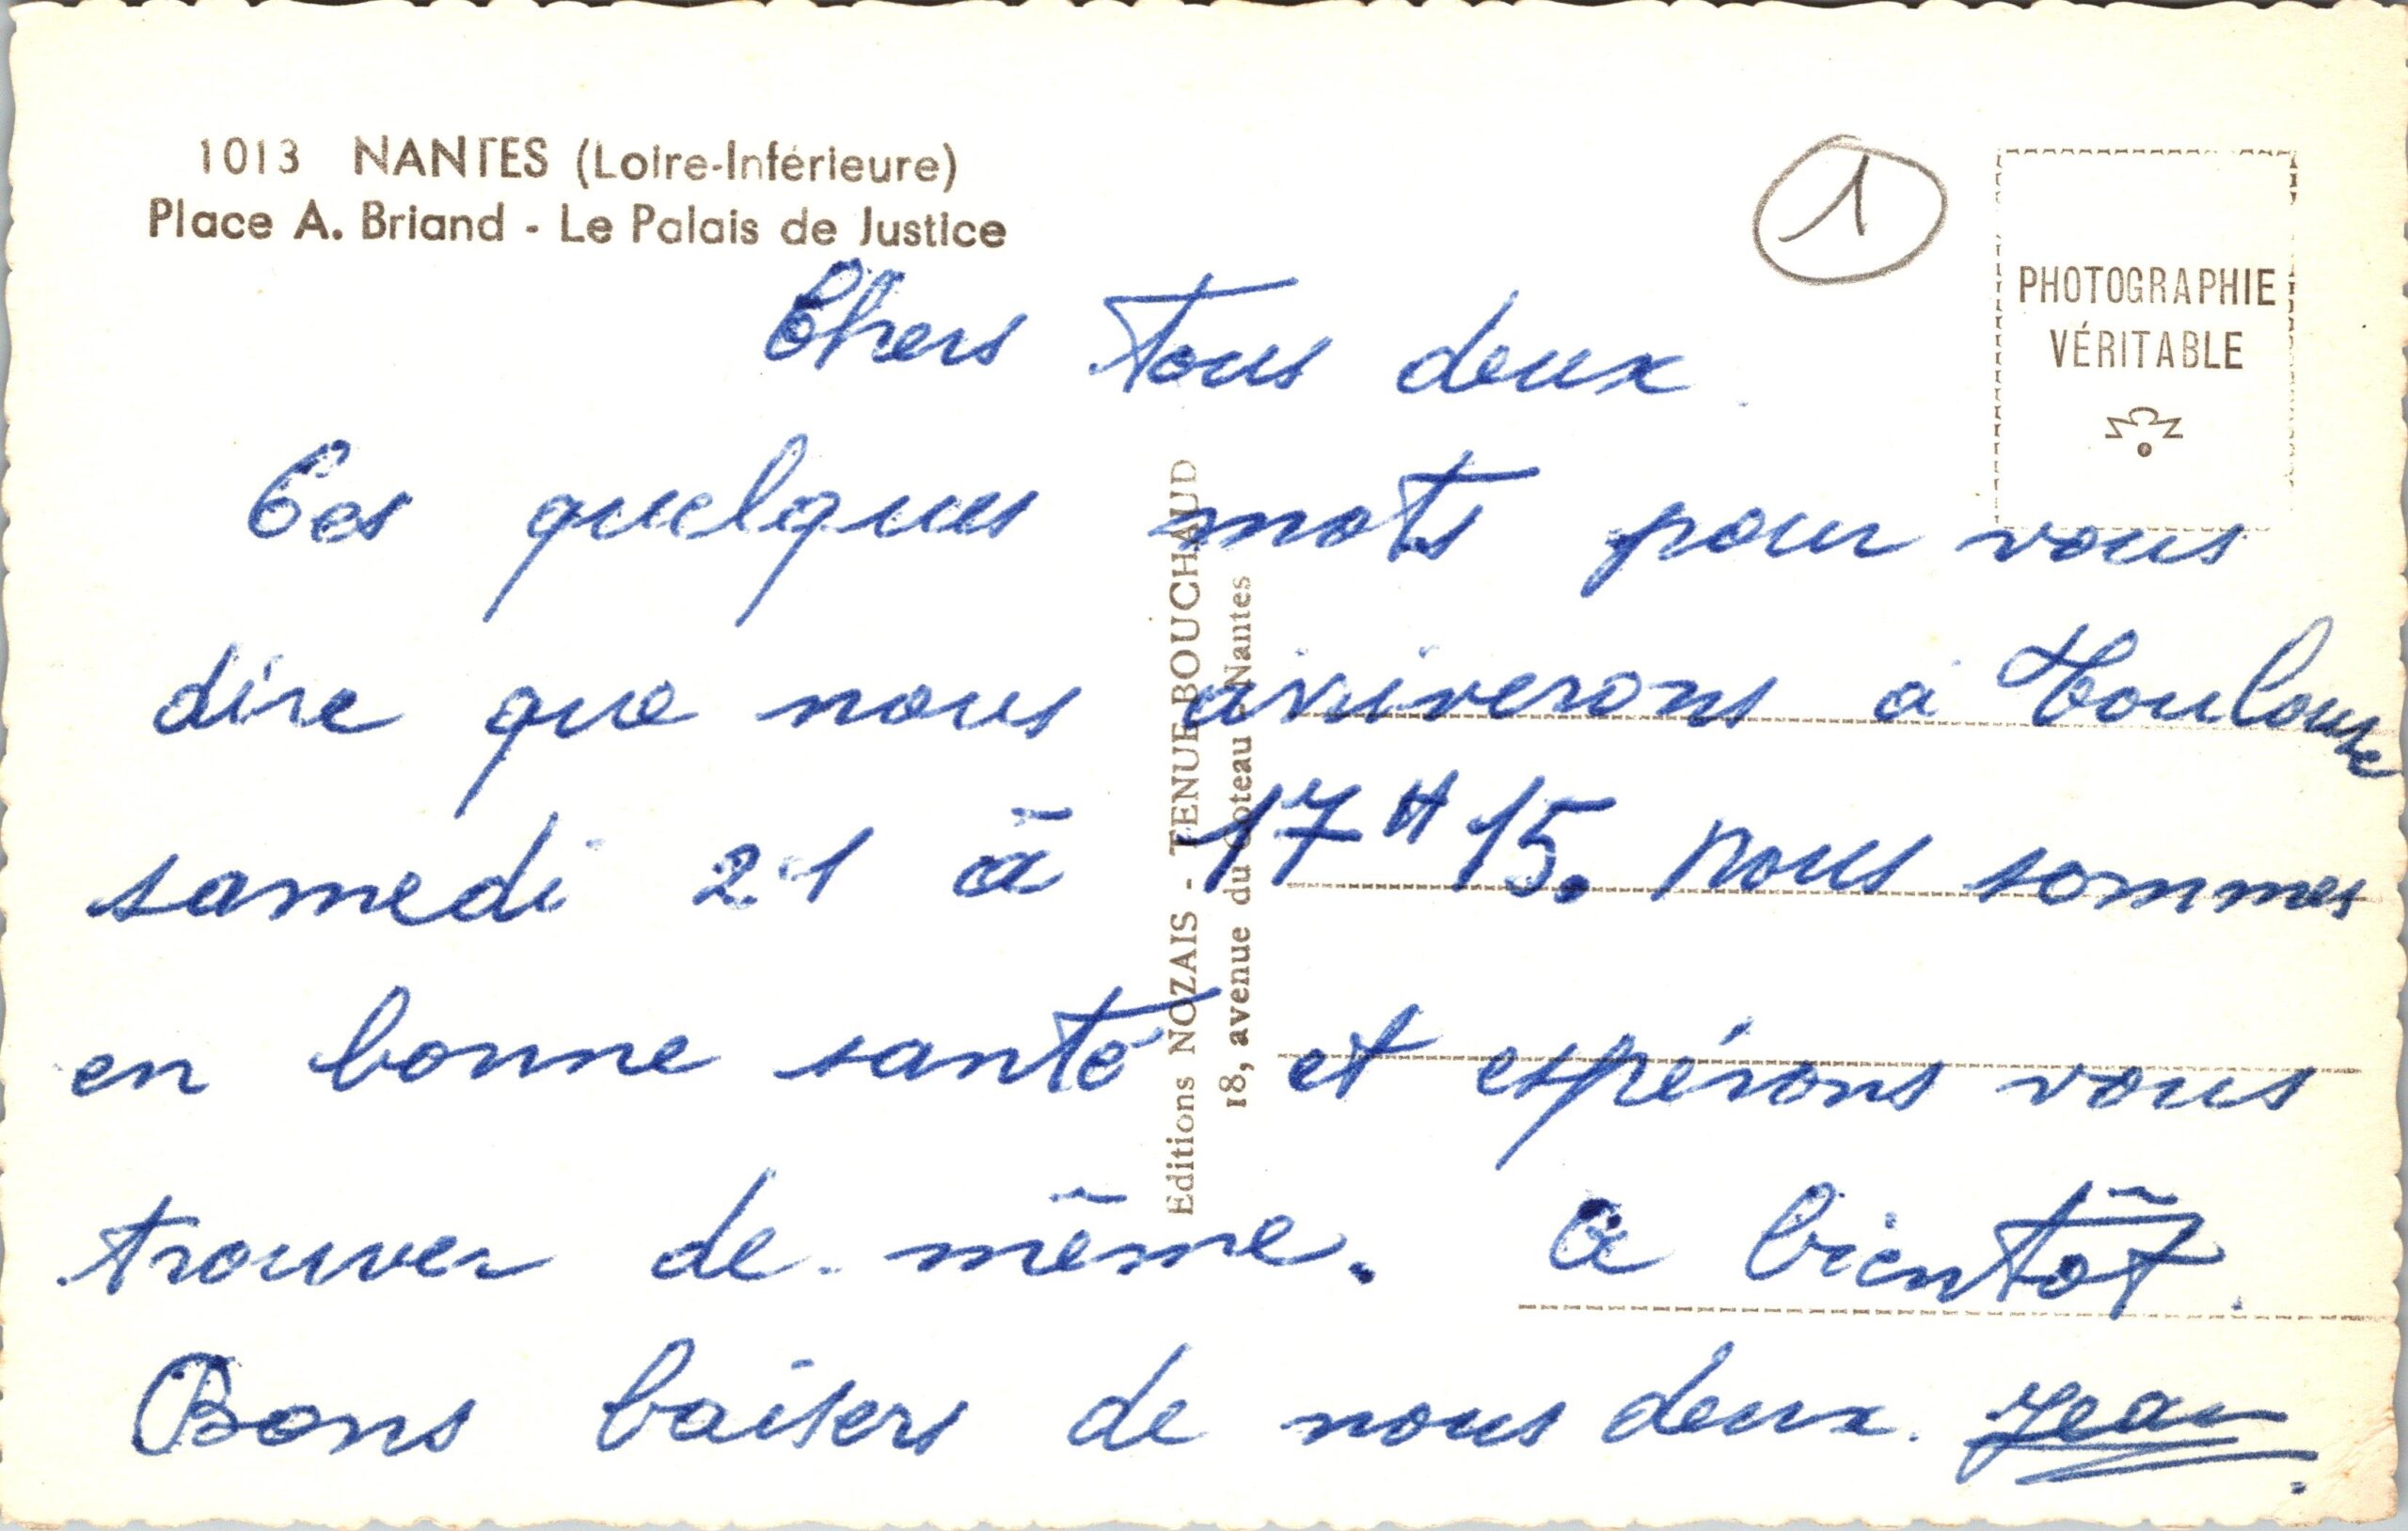 1013 NANTES (Loire-Inférieure)
Place A. Briand - Le Palais de Justice
1
PHOTOGRAPHIE
VÉRITABLE
Chers tous deux.
Ces quelques mots pour vous
dire que nous arriverons à Toulouse
samedi 21 à 17H15. Nous sommes
en bonne santé et espérons vous
trouver de même. A bientôt.
Bons baisers de nous deux. Jean
Editions NOZAIS - TENUE BOUCHAUD
18, avenue du Coteau - Nantes